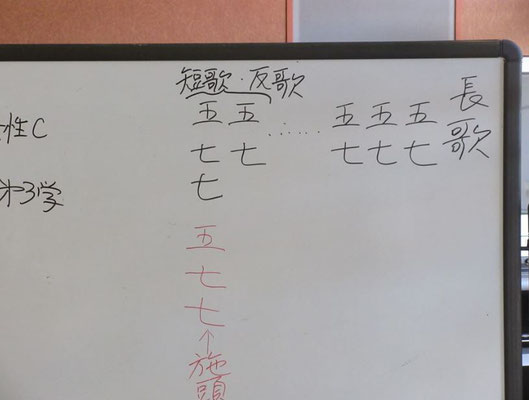 長歌
五七
五七
五七
……
短歌・反歌
五七
五七七
五七七
↑
施頭
性C
学